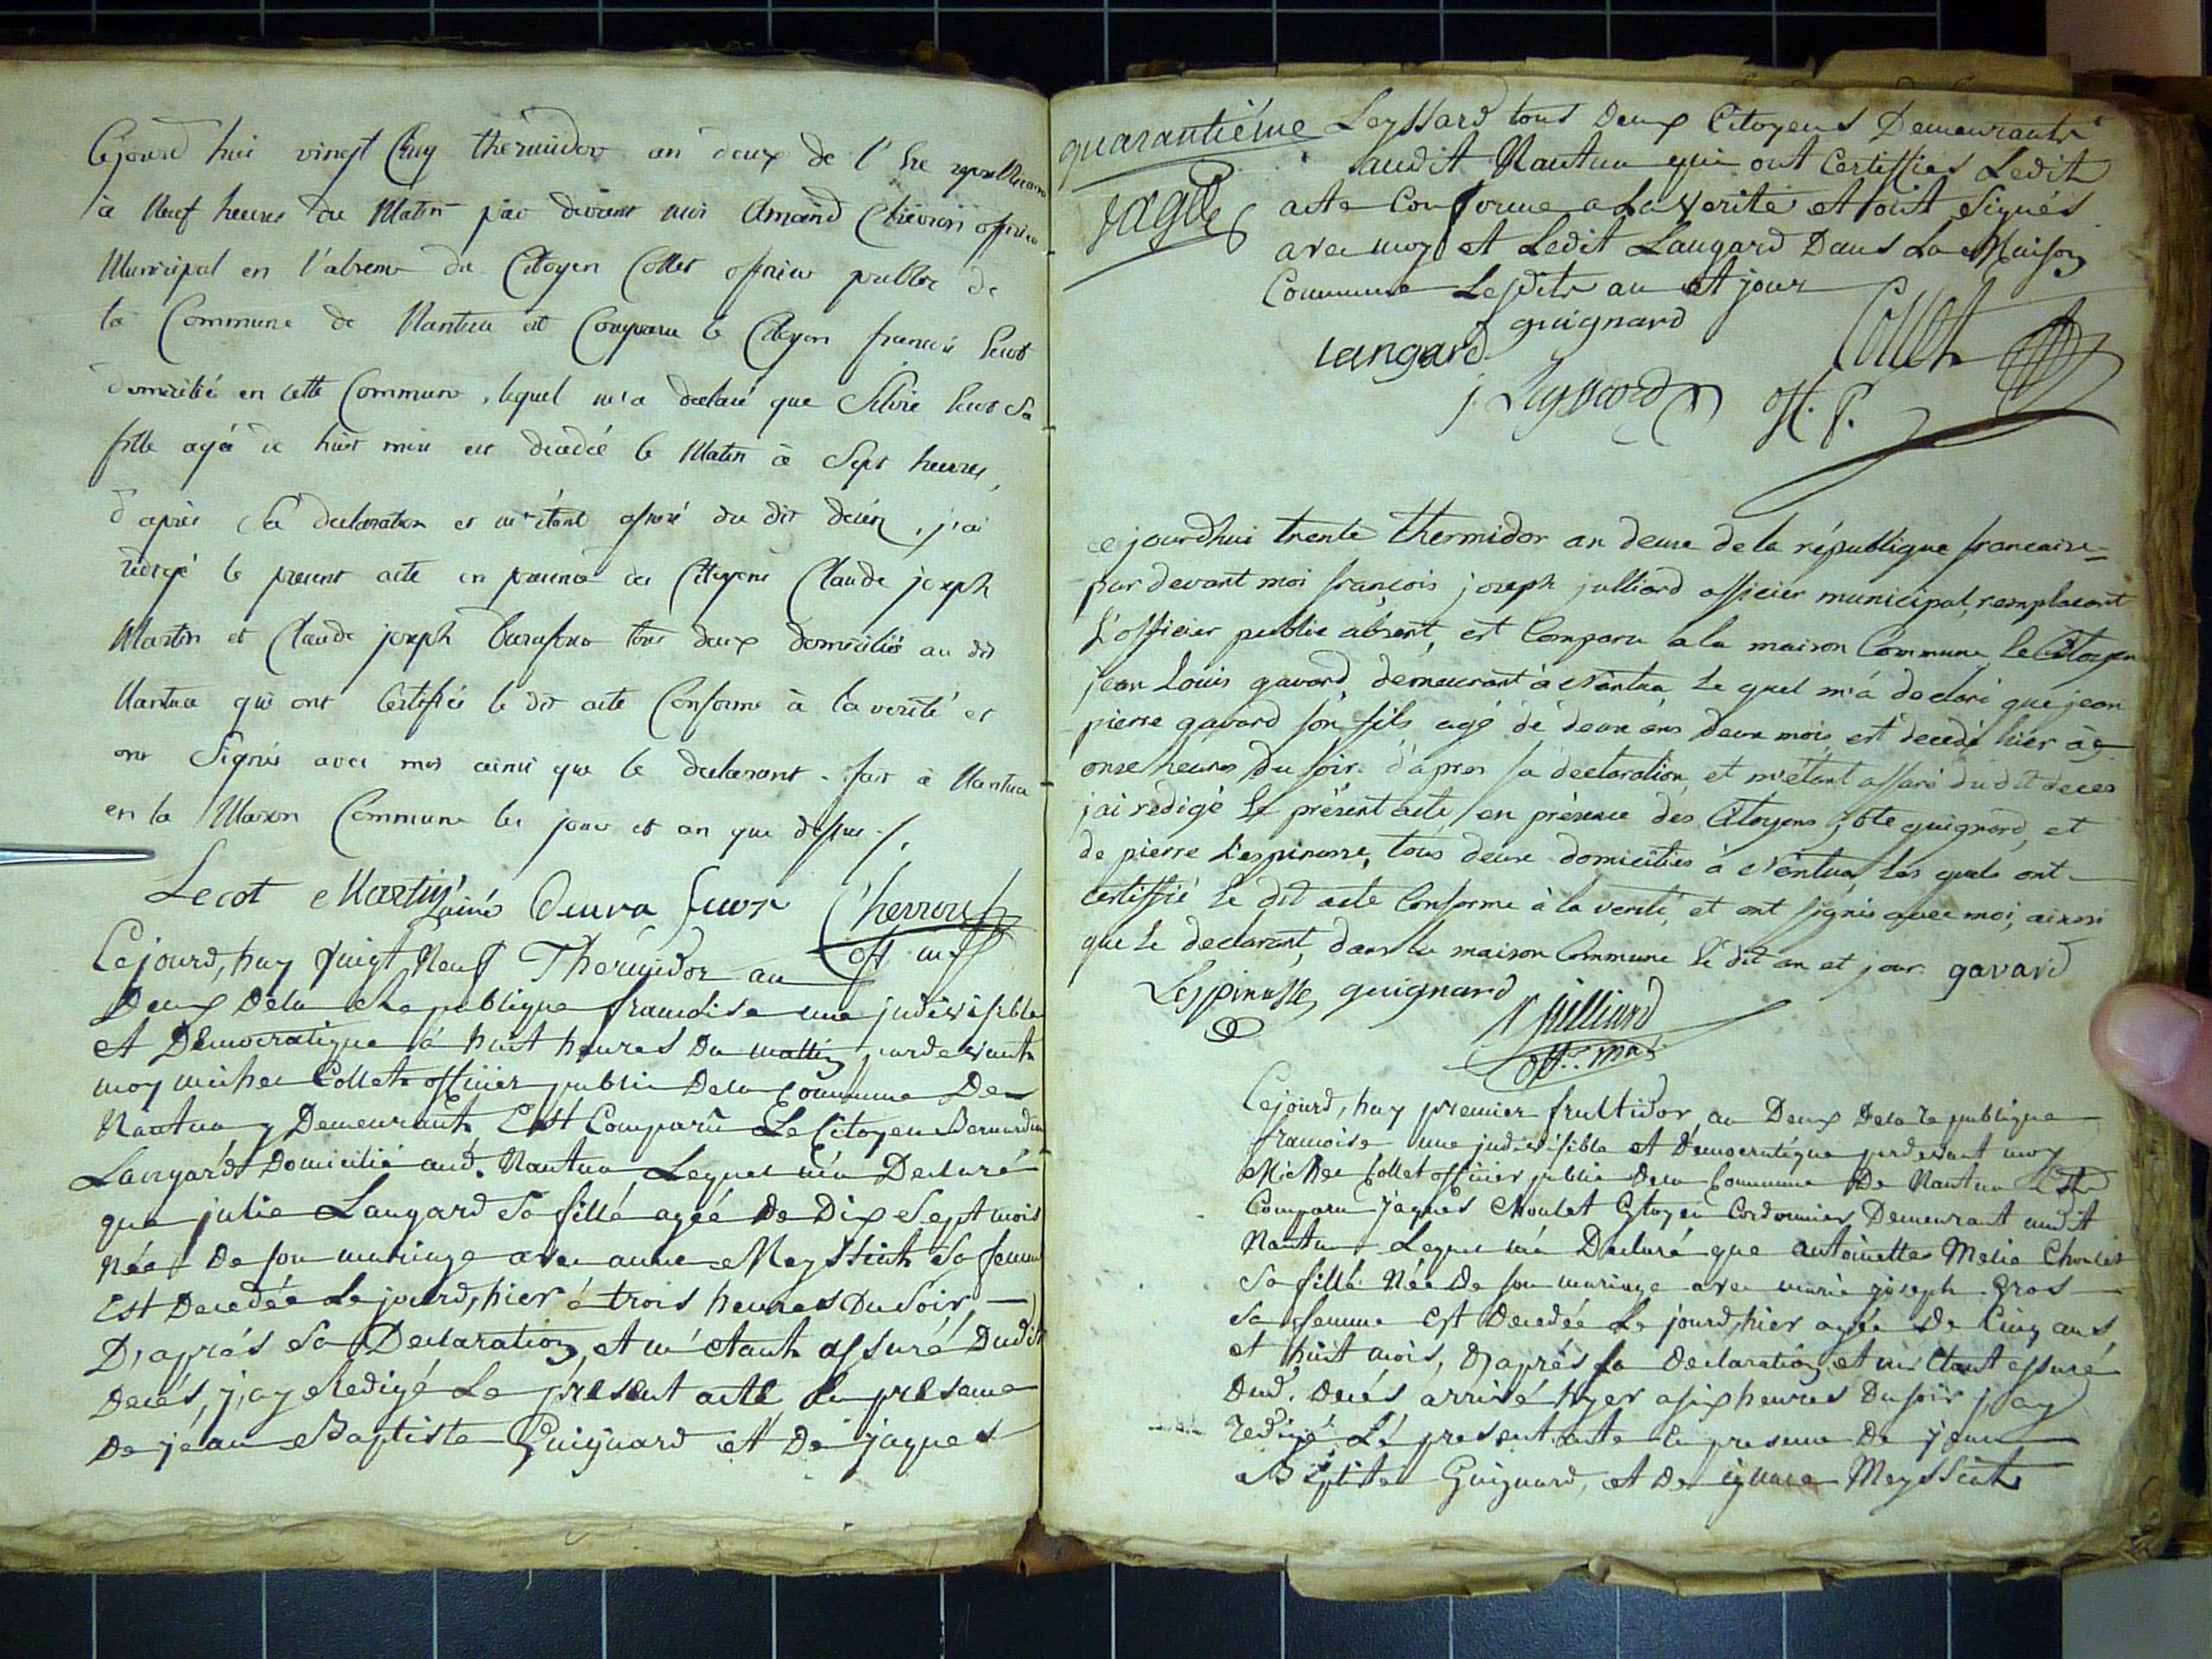 Cejourd hui vingt Cinq thermidor an deux de l'Ere republicaine
à Neuf heures du Matin par devant moi Amand Chevron officier
Municipal en l'absence du Citoyen Collet officier public de
la Commune de Nantua est Comparu le Citoyen francois Lecot
domicilié en cette Commune, lequel m'a declaré que Silvie Lecot sa
fille agée de huit mois est decedée le Matin à Sept heures,
d'après sa declaration et m'étant assuré du dit decès, j'ai
redigé le present acte en presence des Citoyens Claude joseph
Martin et Claude joseph tous deux domiciliés au dit
Nantua qui ont Certifiés le dit acte Conforme à la verité et
ont Signés avec moi ainsi que le declarant. fait à Nantua
en la Maison Commune les jour et an que dessus ./.
Lecot Martin l'ainé Chevron
off. m.
Cejourd,huy vingt Neuf Thermidor an
Deux Dela Republique francoise une judivisible
et Democratique à huit heures Du mattin, pardevant
moy michel Collet officier public Dela Commune De
Nantua y Demeurant Est Comparu Le Citoyen Bernardin
Langard Domicilié aud. Nantua Lequel m'a Declaré
que julie Langard Sa fille agée De Dix Sept mois
Née De son mariage avec anne Meyssiat Sa femme
Est Decedée Le jourd,hier à trois heures Du Soir, —
D,après Sa Declaration, et m'etant assuré Dudit
Decés, j,ay Redigé Le present acte En presence
De jean Baptiste Guignard et De jaques
quarantiéme
Leyssard tous Deux Citoyens Demeurants
audit Nantua qui ont Certiffiés Ledit
acte Conforme a La Verité et ont Signés
avec moy et Ledit Langard Dans La Maison
Commune Lesdits an et jour
guignard
Langard
Collet
j. Leyssard
off. P.
ce jourdhui trente thermidor an deux de la république francaise=
par devant moi françois joseph julliard officier municipal, remplacant
L'officier public absent, est Comparu a la maison Commune, Le Citoyen
jean Louis gavard, demeurant à Nantua Le quel m'a declaré que jean
pierre gavard son fils agé de deux ans deux mois, est decedé hier à
onze heures du soir. d'apres sa declaration, et m'étant assuré du dit deces
j'ai redigé Le présent acte, en présence des Citoyens jbte guignard, et
de pierre Lespinasse, tous deux domiciliés à Nantua, Les quels ont
certiffié Le dit acte Conforme à la verité, et ont signés avec moi, ainsi
que Le declarant, dans la maison Commune Le dit an et jour. gavard
Lespinasse, guignard
julliard
off. mal
Cejourd,huy premier fructidor, an Deux Dela Republique
francoise une judivisible et Democratique pardevant moy
Michel Collet officier public Dela Commune De Nantua Est
Comparu jaques Choulet Citoyen Cordonnier Demeurant audit
Nantua Lequel m'a Declaré que antoinette Melie Choulet
Sa fille Née De son mariage avec marie joseph Gros —
Sa femme Est Decedée Le jourd,hier agée De Cinq ans
et huit mois, D,après Sa Declaration, et m'Etant assuré
Dud. Decés arrivé hyer a six heures Du soir j,ay
Redigé Le present acte En presence De jean
Baptiste Guignard, et De ignace Meyssiat